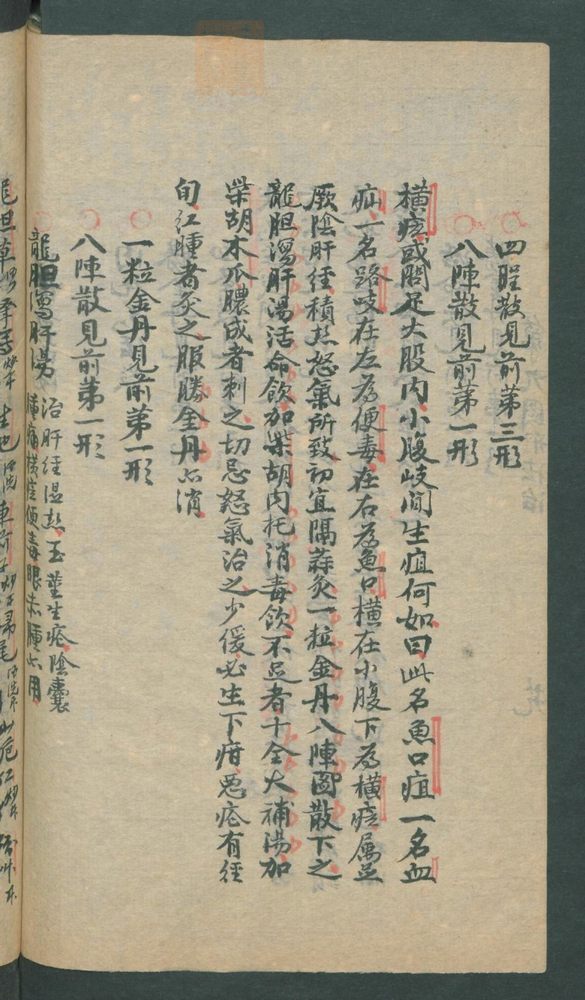 四聖散見前第三形
八陣散見前第一形
橫痃或問足大股內小腹岐間生疽何如曰此名魚口疽一名血
疝一名路岐在左為便毒在右為魚口橫在小腹下為橫痃属足
厥陰肝經積热怒氣所致初宜隔蒜灸一粒金丹八陣圖散下之
龍胆瀉肝湯活命飲加柴胡內托消毒飲不足者十全大補湯加
柴胡木瓜膿成者刺之切忌怒氣治之少缓必生下疳惡疮有經
旬紅腫者灸之服勝金丹亦消
一粒金丹見前第一形
八陣散見前第一形
龍胆瀉肝湯 治肝經湿热玉莖生疮陰囊
腫痛橫痃便毒眼赤腫亦用